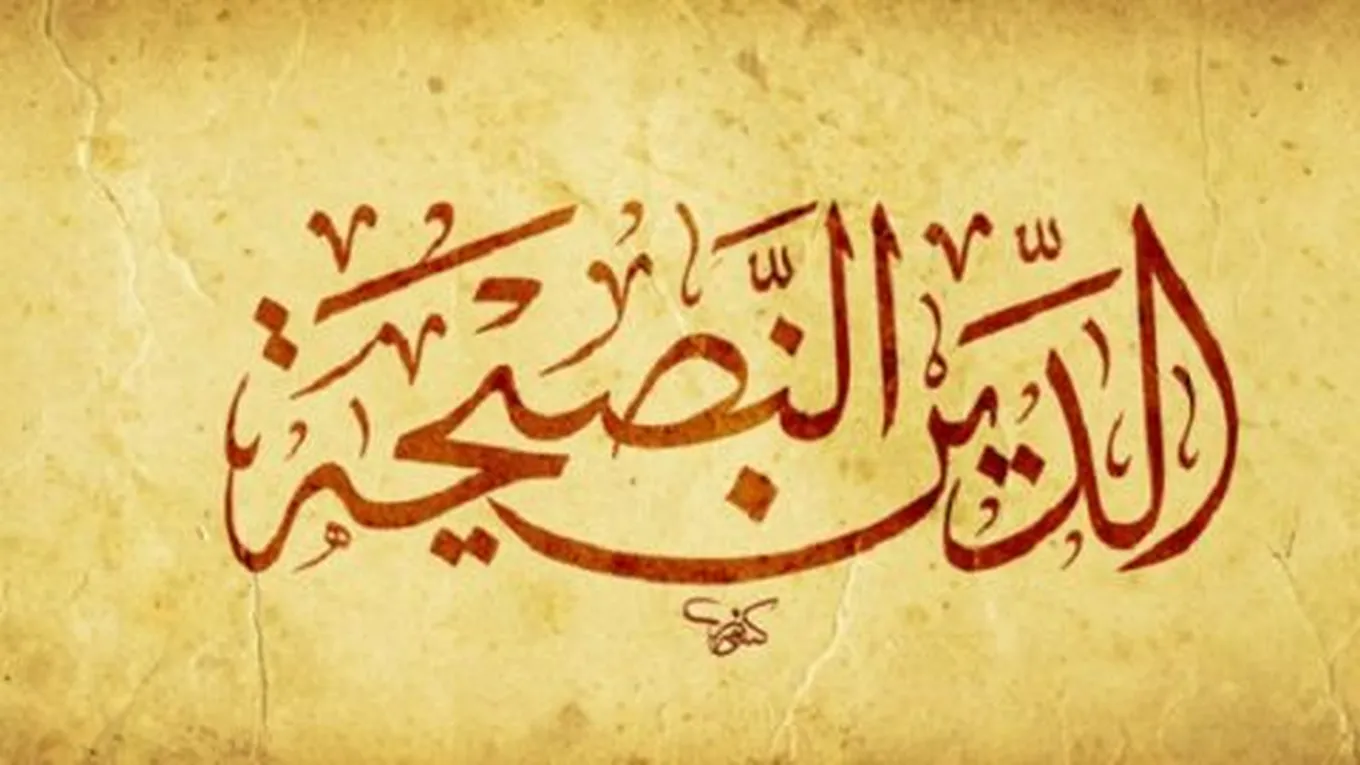 الدِّينُ النَّصِيحَةُ